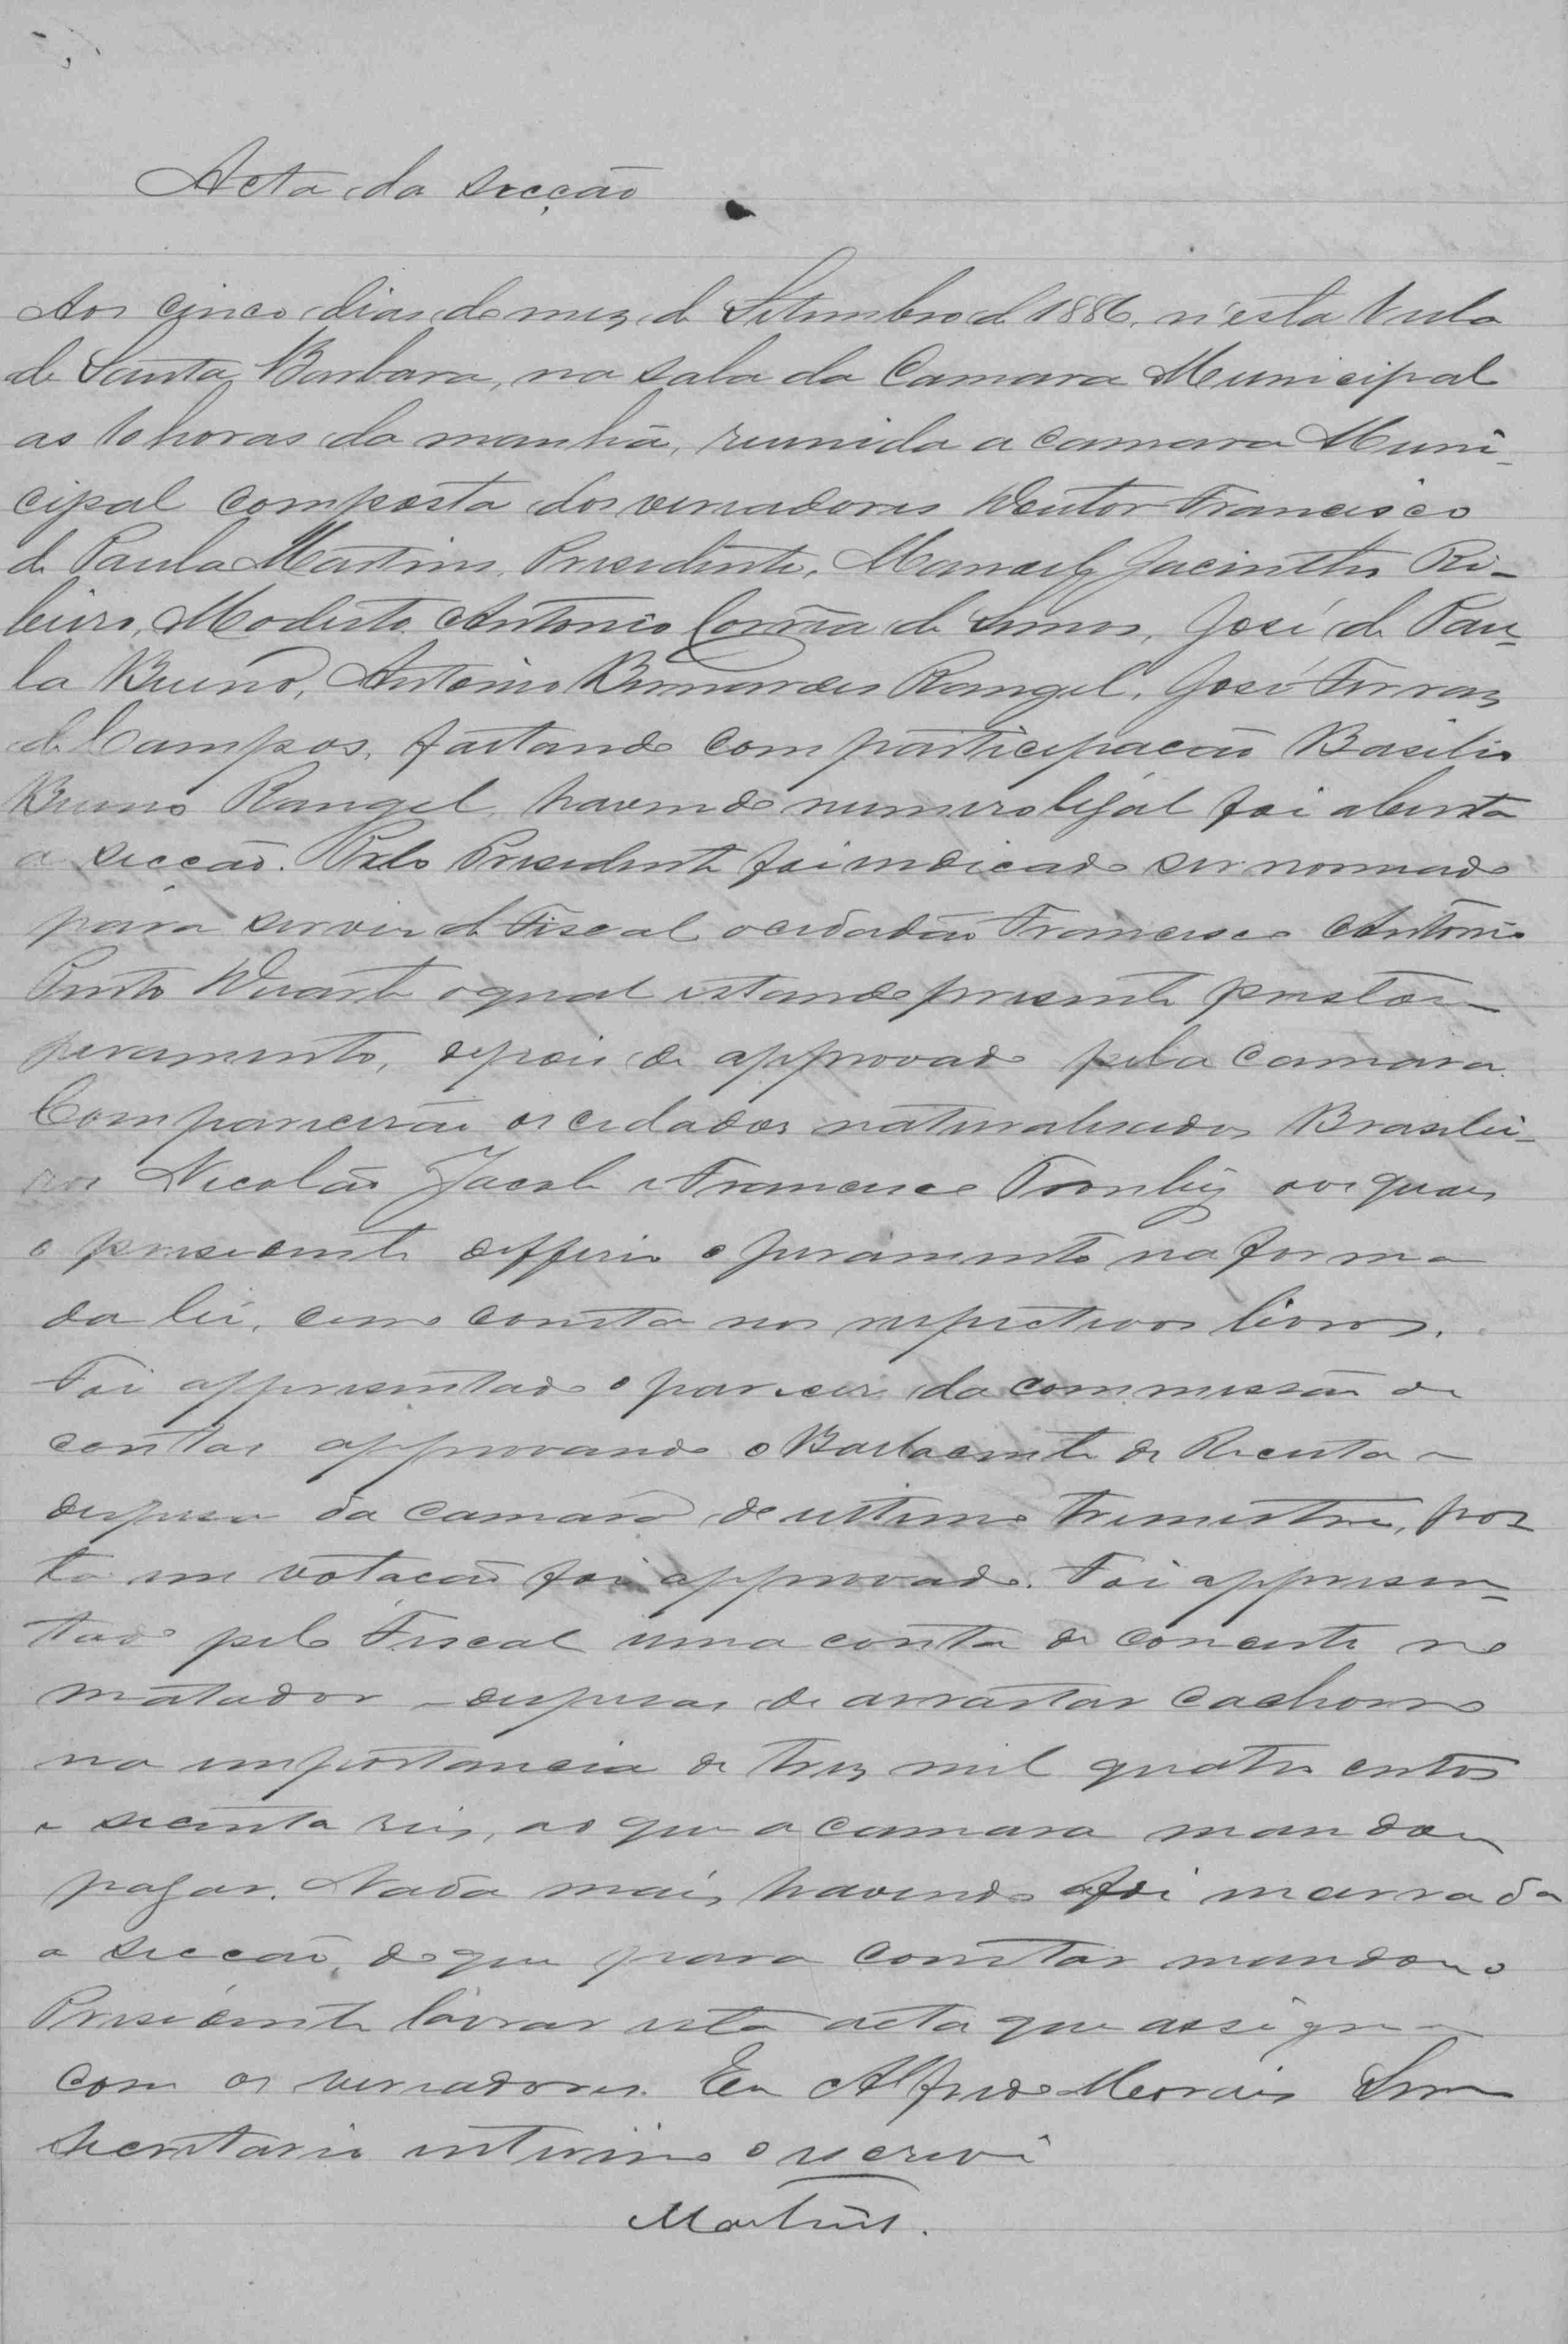 Acta da secção
Aos cinco dias do mez de Setembro de 1886, n'esta Villa
de Santa Barbara, na sala da Camara Municipal
as 10 horas da manhã, reunida a camara Muni-
cipal composta dos vereadores Doutor Francisco
de Paula Martins, Presidente, Manoel Jacintho Ri-
beiro, Modesto Antonio Corrêa de Lemos, José de Pau-
la Bueno, Antonio Bernardes Rangel, José Ferraz
de Campos, faltando com participação Basilio
Bueno Rangel, havendo numero legal foi aberta
a secção. Pelo Presidente foi indicado ser nomeado
para servir de Fiscal o cidadão Francisco Antonio
Pinto Duarte o qual estando presente prestou
juramento, depois de approvado pela camara.
Comparecerão os cidadãos naturalisados Brasilei-
ros Nicoláo Jacob e Francisco aos quaes
o presidente defferio o juramento na forma
da lei, como consta nos respectivos livros.
Foi appresentado o parecer da commissão de
contas approvando o Ballancete de Receita e
despesa da camara do ultimo trimestre, pos
ta em votacão foi approvado. Foi appresen-
tado pelo Fiscal uma conta de concerto no
matador e despesas de arrastar cachorro
na importancia de trez mil quatro centos
e secenta reis, ao que a camara mandou
pagar. Nada mais havendo foi incerrada
a secção, do que para constar mandou o
Presidente lavrar esta acta que assigna
com os vereadores. Eu Alfredo Moraes
Secretario interino o escrevi
Martins.